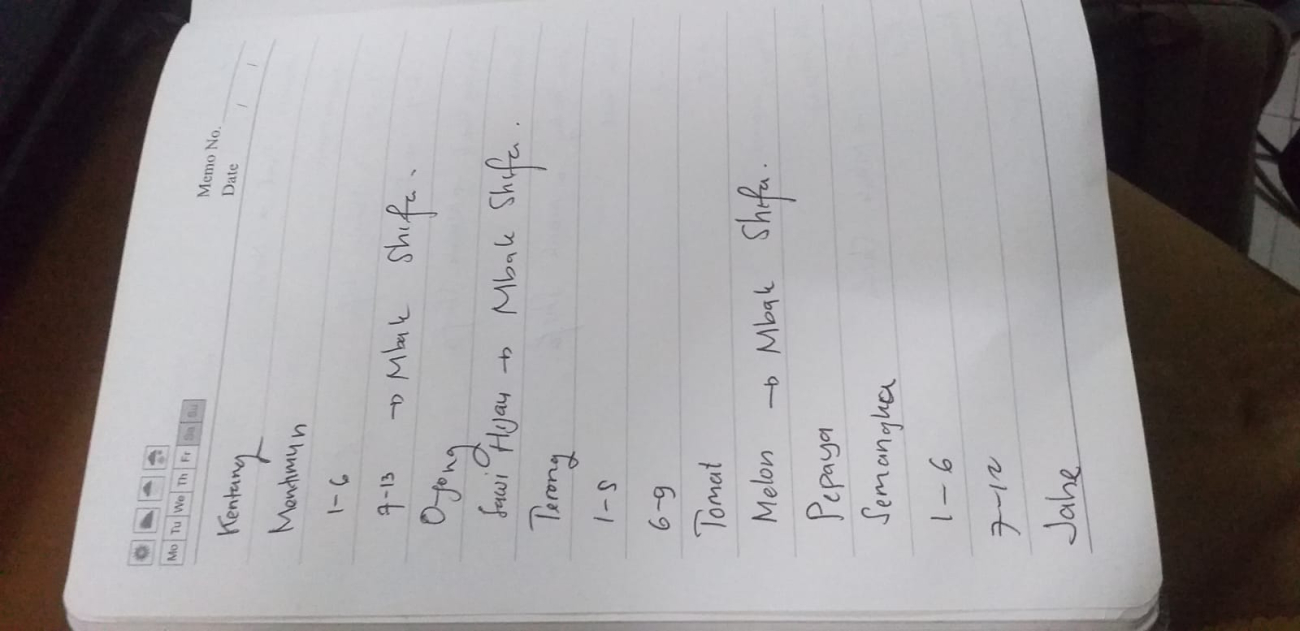 Memo No.
Date / /
Mo Tu We Th Fr Sa Su
Kentang
Mentimun
1-6
7-13 → Mbak Shifa.
O-yong
Sawi Hijau → Mbak Shifa.
Terong
1-5
6-9
Tomat
Melon → Mbak Shifa.
Pepaya
Semangka
1-6
7-12
Jahe